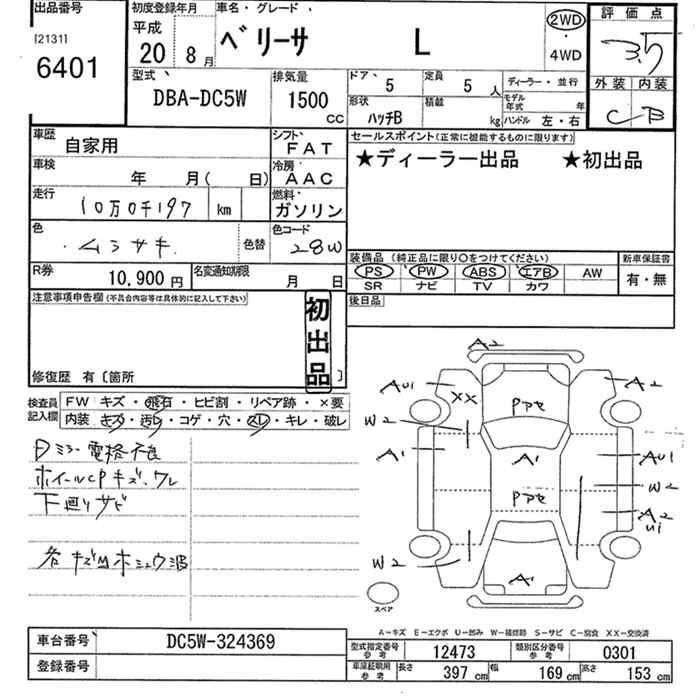 出品番号
[2131]
6401
初度登録年月
平成
20年 8月
車名・グレード
ベリーサ L
2WD
4WD
評価点
3.5
外装 内装
C B
型式
DBA-DC5W
排気量
1500 CC
ドア 5
形状 ハッチB
定員 5人
積載 kg
ディーラー・並行
モデル年式 年
ハンドル 左・右
車歴 自家用
シフト FAT
車検 年 月( 日)
冷房 AAC
走行 10万0千197 km
燃料 ガソリン
色 ムラサキ 色替
色コード 28W
R券 10,900円
名変通知期限 月 日
セールスポイント(正常に機能するものに限ります)
★ディーラー出品 ★初出品
装備品(純正品に限り○をつけてください)
PS PW ABS エアB AW
SR ナビ TV カワ
新車保証書
有・無
後日品
注意事項申告欄(不具合内容等は具体的に記入して下さい)
初出品
修復歴 有〔箇所 〕
検査員記入欄
FW キズ・飛石・ヒビ割・リペア跡・×要
内装 キズ・汚レ・コゲ・穴・スレ・キレ・破レ
Dミラー電格不良
ホイールCPキズ、ワレ
下廻りサビ
各キズ
A2
AU1
XX
W2
A1
W2
A2
AU1
W2
A2
U1
A1
A1
スペア
A-キズ E-エクボ U-凹み W-補修跡 S-サビ C-腐食 XX-交換済
車台番号 DC5W-324369
登録番号
型式指定番号 参考 12473
類別区分番号 参考 0301
車庫証明用 参考 長さ 397cm 幅 169cm 高さ 153cm